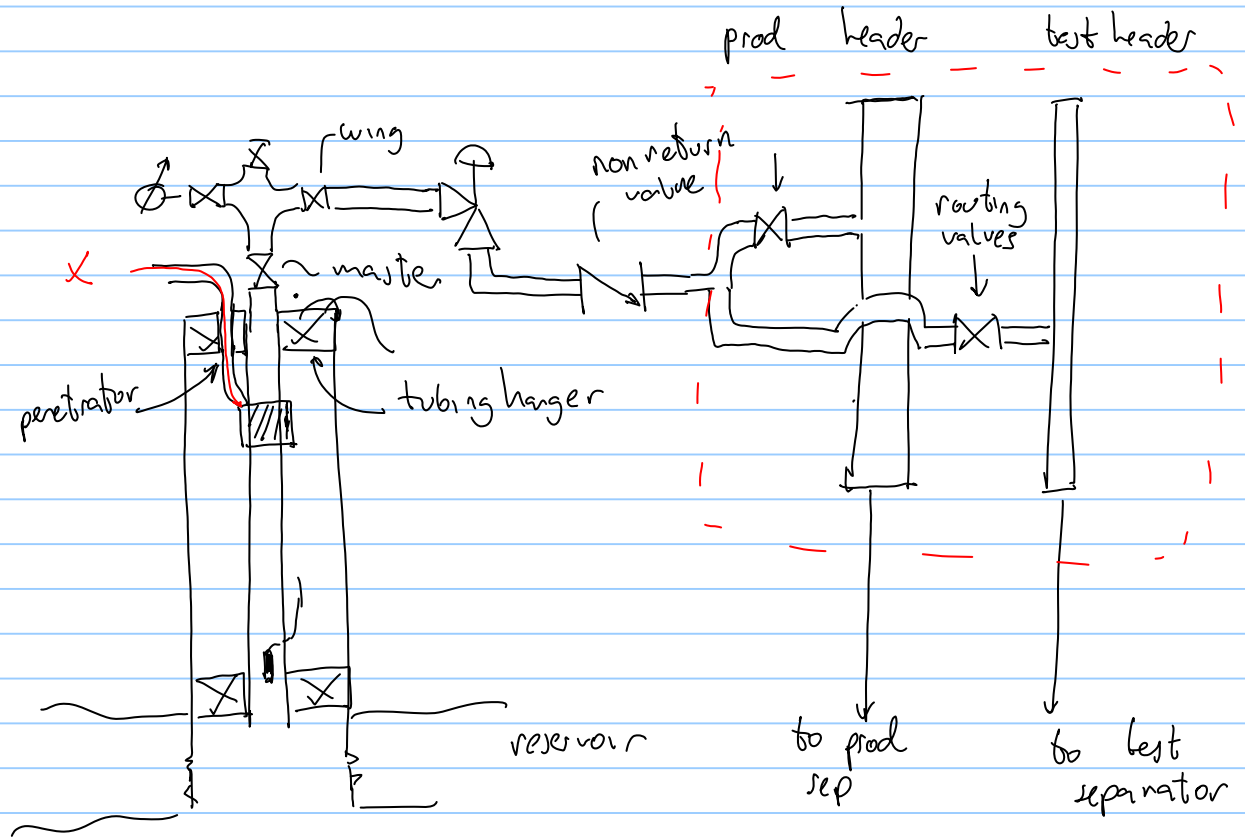 prod header
test header
wing
non return
valve
routing
valves
X
master
penetrator
tubing hanger
reservoir
to prod
sep
to test
separator